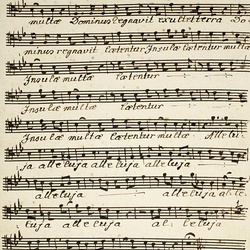 multæ Dominus regnavit exultet terra Do
minus regnavit Lætentur Insulæ Lætentur multæ
Insulæ multæ Lætentur
Insulæ multæ Lætentur
Insulæ multæ Lætentur multæ Allelu
ja alleluja alleluja alleluja
alleluja alleluja alle
luja alleluja alleluja